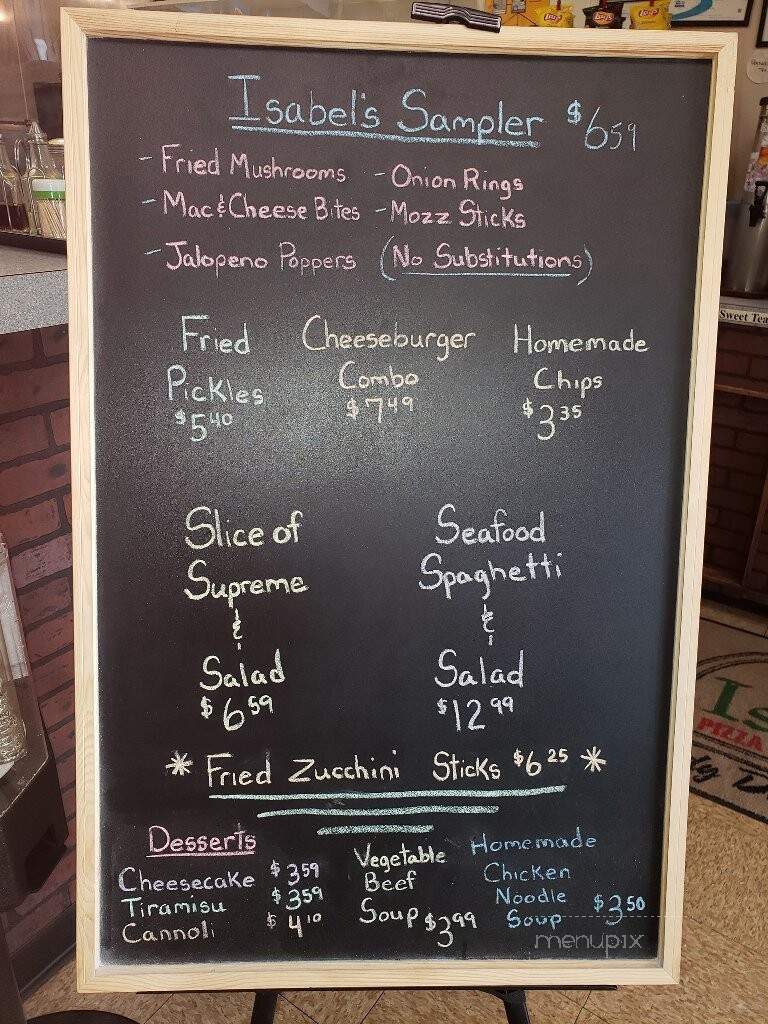 Isabel's Sampler $6 59
- Fried Mushrooms - Onion Rings
- Mac & Cheese Bites - Mozz Sticks
- Jalopeno Poppers (No Substitutions)
Fried
Pickles
$5 40
Cheeseburger
Combo
$7 49
Homemade
Chips
$3 35
Slice of
Supreme
&
Salad
$6 59
Seafood
Spaghetti
&
Salad
$12 99
* Fried Zucchini Sticks $6 25 *
Desserts
Cheesecake $3 59
Tiramisu $3 59
Cannoli $4 10
Vegetable
Beef
Soup $3 99
Homemade
Chicken
Noodle
Soup $3 50
menupix
Sweet Tea
Is
PIZZA
Lay's